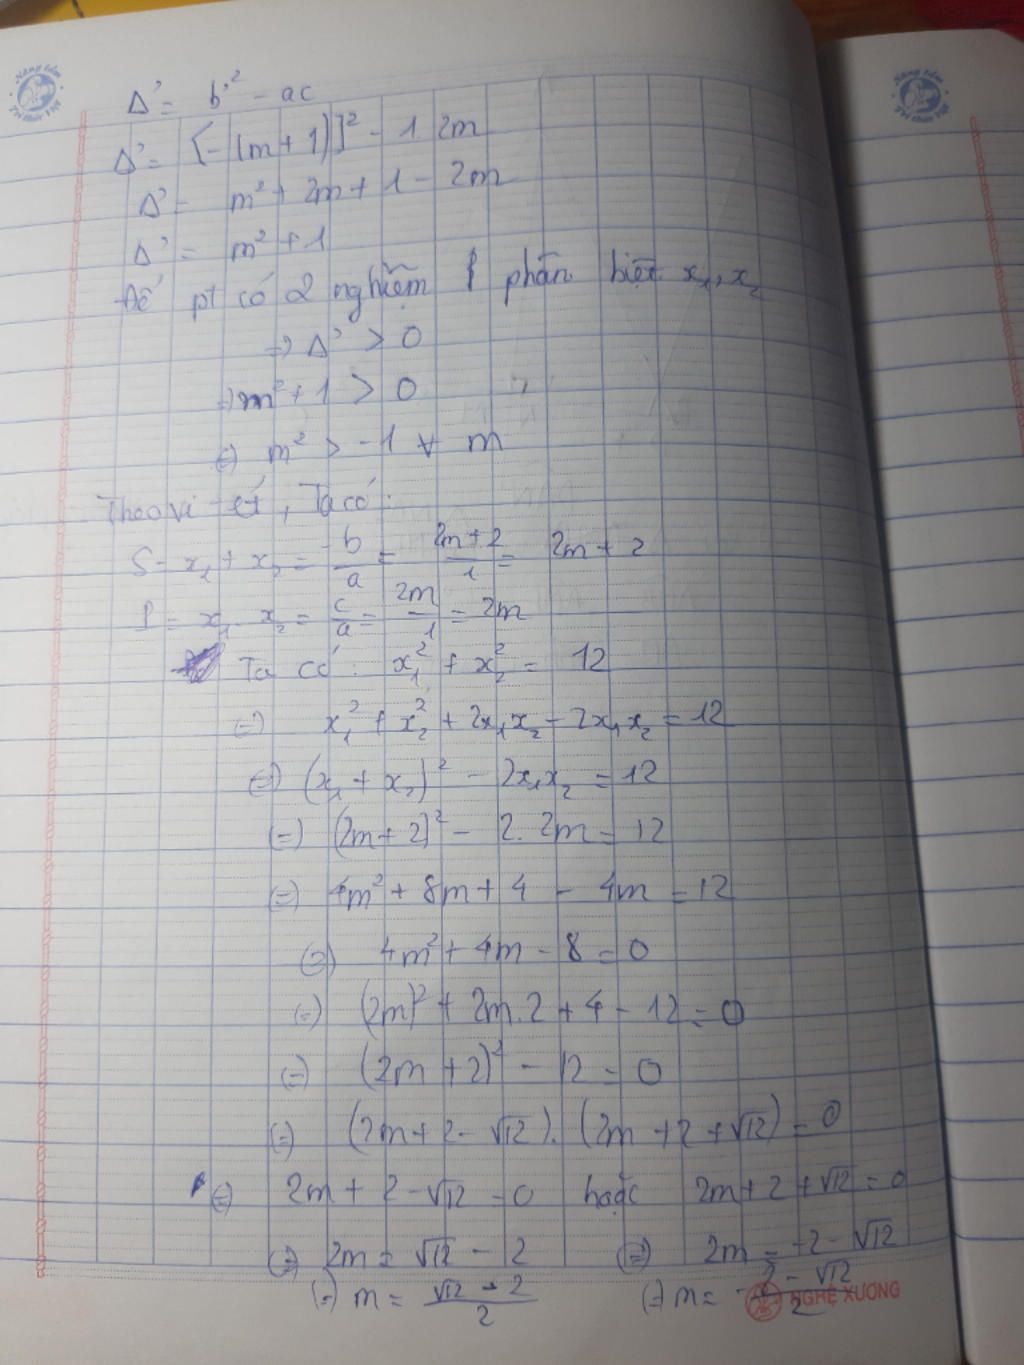 Nâng tầm
Tri thức Việt
Nâng tầm
Tri thức Việt
Δ' = b'² - ac
Δ' = [-(m+1)]² - 1 2m
Δ' = m² + 2m + 1 - 2m
Δ' = m² + 1
Để pt có 2 nghiệm phân biệt x₁, x₂
=) Δ' > 0
=) m² + 1 > 0
(=) m² > -1 ∀ m
Theo vi-ét, Ta có:
S = x₁ + x₂ = -b/a = 2m+2/1 = 2m + 2
P = x₁ . x₂ = c/a = 2m/1 = 2m
Ta có: x₁² + x₂² = 12
(=) x₁² + x₂² + 2x₁x₂ - 2x₁x₂ = 12
(=) (x₁ + x₂)² - 2x₁x₂ = 12
(=) (2m + 2)² - 2. 2m = 12
(=) 4m² + 8m + 4 - 4m = 12
(=) 4m² + 4m - 8 = 0
(=) (2m)² + 2m.2 + 4 - 12 = 0
(=) (2m + 2)² - 12 = 0
(=) (2m + 2 - √12). (2m + 2 + √12) = 0
(=) 2m + 2 - √12 = 0 hoặc 2m + 2 + √12 = 0
(=) 2m = √12 - 2 (=) 2m = -2 - √12
(=) m = √12 - 2/2 (=) m = -2 - √12/2
NGHỆ XƯƠNG